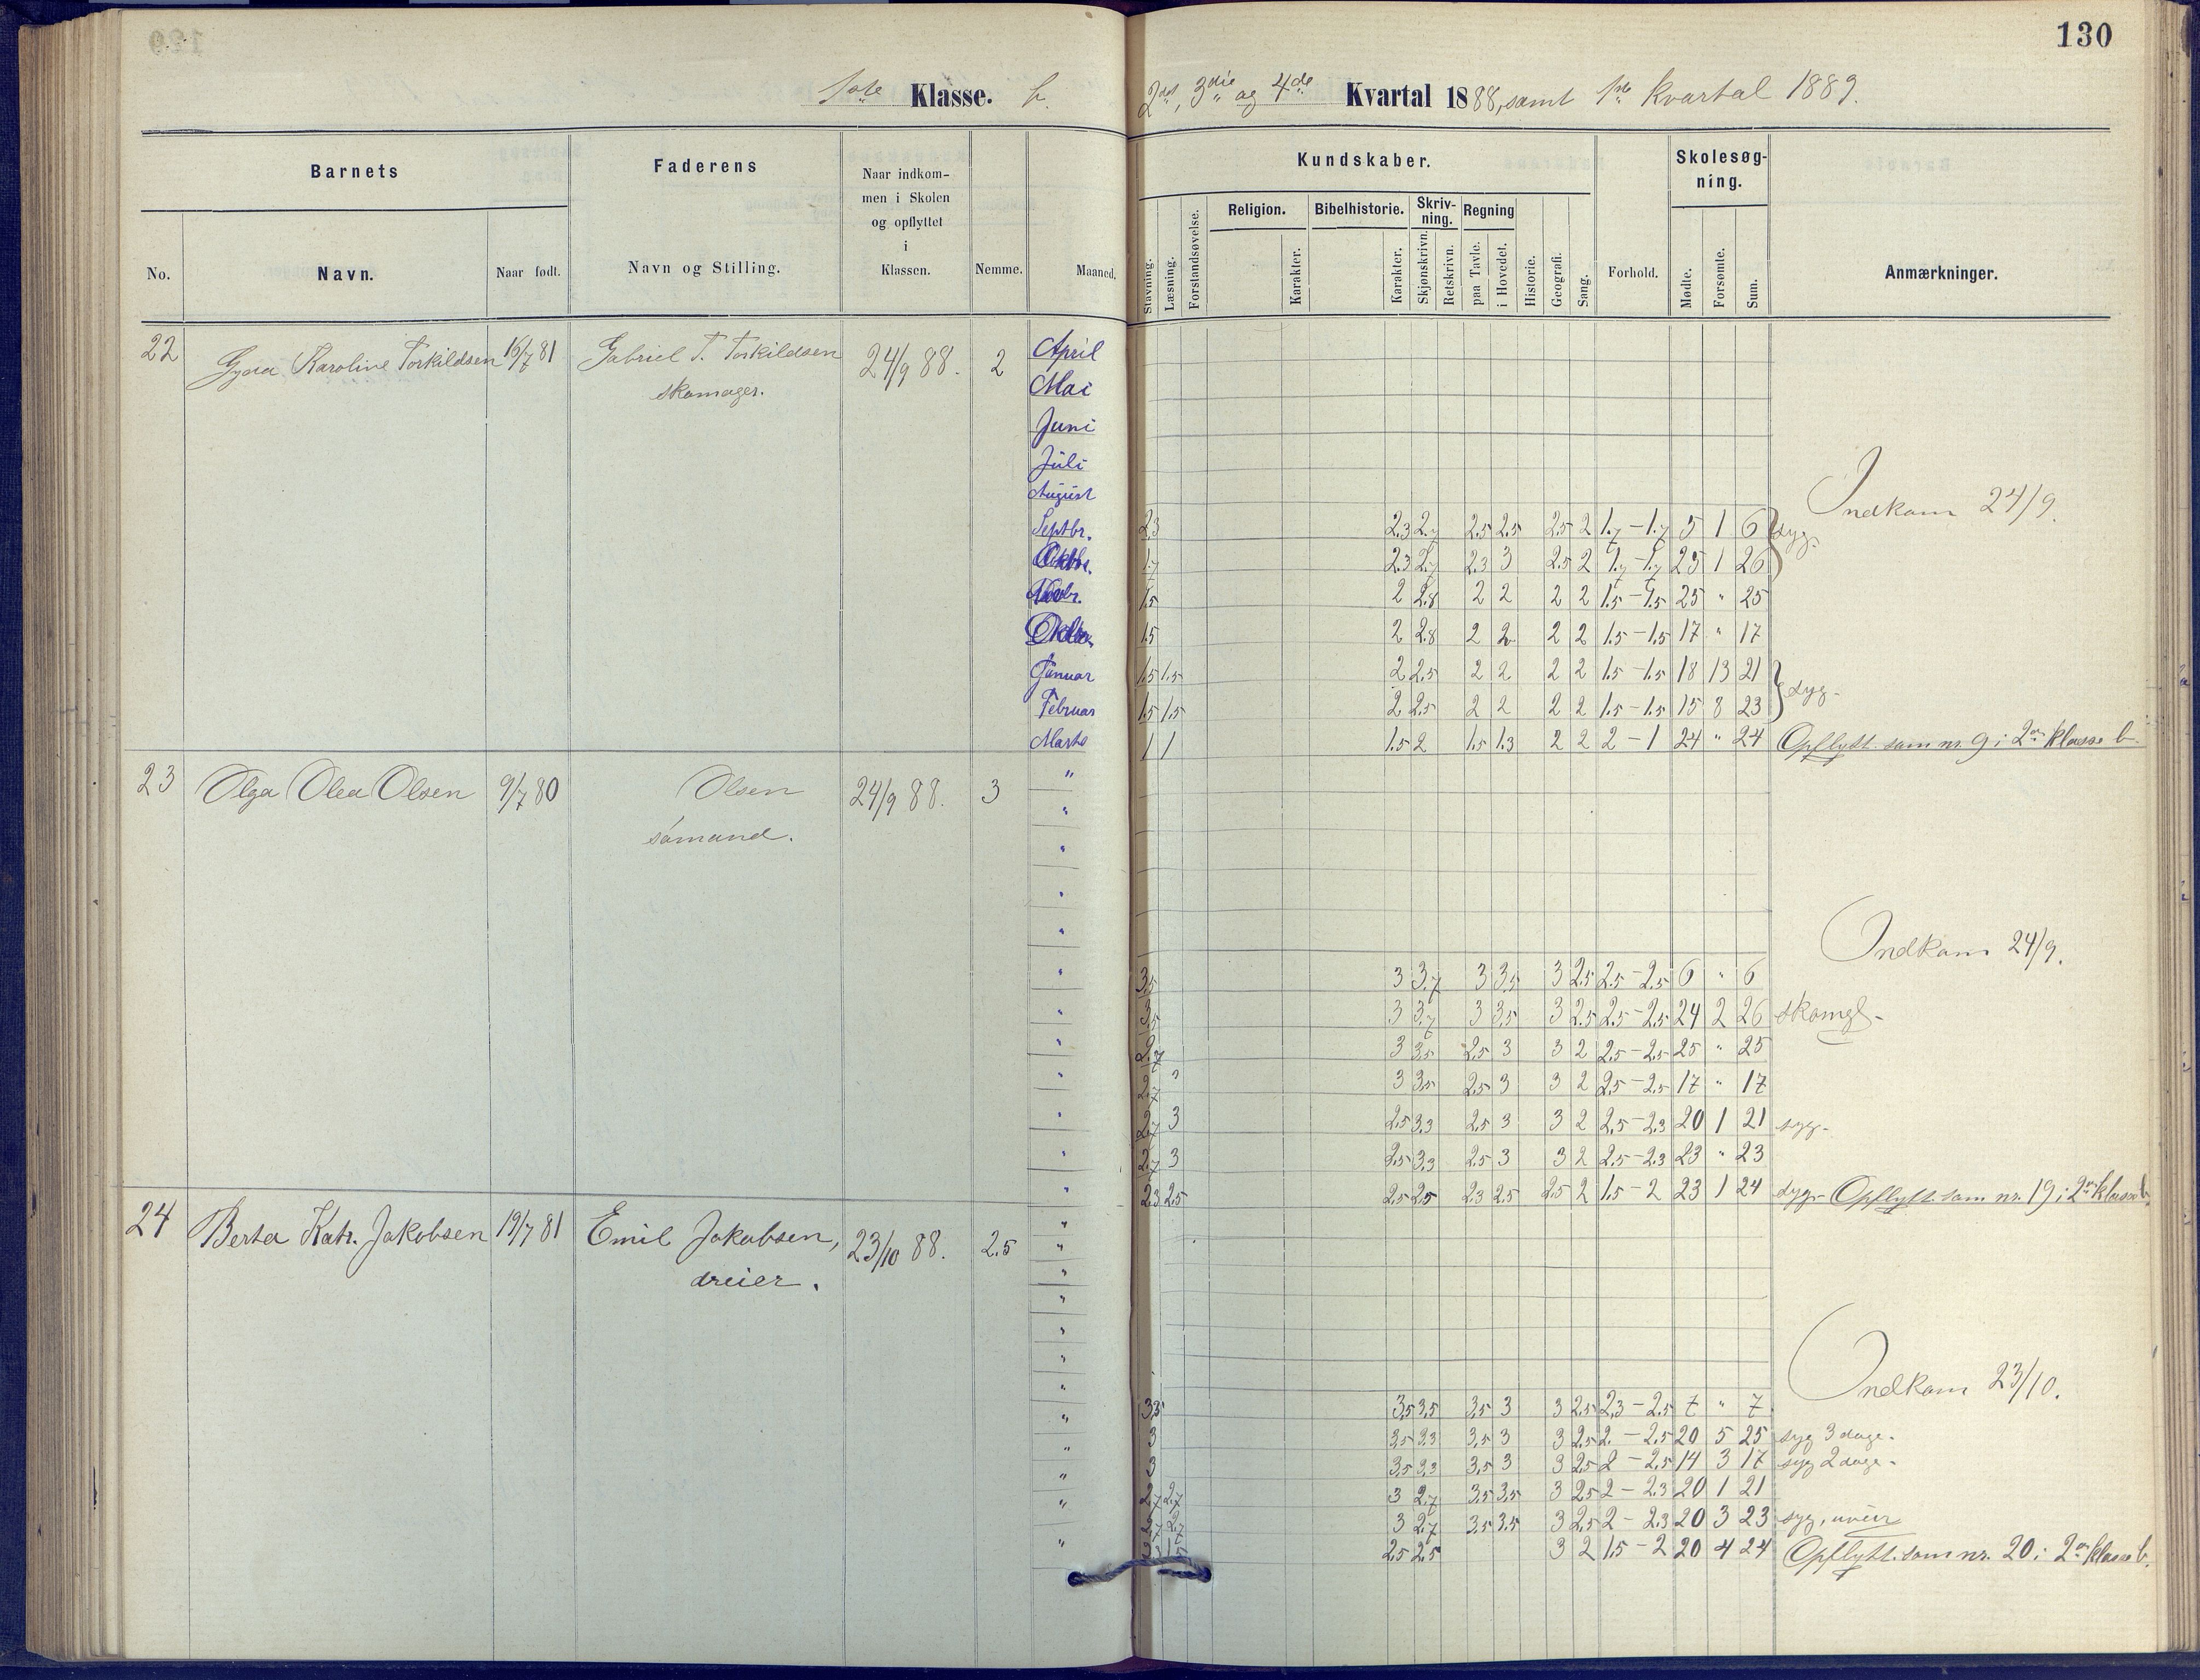 130
1ste Klasse. b.
2det, 3die og 4de Kvartal 1888, samt 1ste kvartal 1889.
Barnets
Faderens
Naar indkom-
men i Skolen
og opflyttet
i
Klassen.
No.
Navn.
Naar født.
Navn og Stilling.
Nemme.
Maaned.
Kundskaber.
Skolesøg-
ning.
Stavning.
Læsning.
Forstandsøvelse.
Religion.
Karakter.
Bibelhistorie.
Karakter.
Skriv-
ning.
Skjønskrivn.
Retskrivn.
Regning
paa Tavle.
i Hovedet.
Historie.
Geografi.
Sang.
Forhold.
Møde.
Forsømte.
Sum.
Anmærkninger.
22 Karoline Torkildsen 16/7 81 Gabriel T. Torkildsen 24/9 88. 2 April
skomager.
Mai
Juni
Juli
August
Indkom 24/9.
Septbr. 2.3 2.3 2.7 2.5 2.5 2.5 2 1.7 - 1.7 5 1 6 syg.
Oktbr. 1.7 2.3 2.7 2.3 3 2.5 2 1.7 - 1.7 25 1 26
Novbr. 1.5 2 2.8 2 2 2 2 1.5 - 1.5 25 " 25
1.5 2 2.8 2 2 2 2 1.5 - 1.5 17 " 17
Januar 1.5 1.5 2 2.5 2 2 2 2 1.5 - 1.5 18 13 21
Februar 1.5 1.5 2 2.5 2 2 2 2 1.5 - 1.5 15 8 23 syg.
Marts 1 1 1.5 2 1.5 1.3 2 2 2 - 1 24 " 24 Opflytt. som nr. 9 i 2en klasse b.
23 Olga Olea Olsen 9/7 80 Olsen 24/9 88. 3 "
sømand.
"
"
"
"
Indkom 24/9.
" 3.5 3 3.7 3 3.5 3 2.5 2.5 - 2.5 6 " 6
" 3.5 3 3.7 3 3.5 3 2.5 2.5 - 2.5 24 2 26 skomgl.
" 2.7 3 3.5 2.5 3 3 2 2.5 - 2.5 25 " 25
" 2.7 " 3 3.5 2.5 3 3 2 2.5 - 2.5 17 " 17
" 2.7 3 2.5 3.3 2.5 3 3 2 2.5 - 2.3 20 1 21 syg.
" 2.7 3 2.5 3.3 2.5 3 3 2 2.5 - 2.3 23 " 23
" 2.3 2.5 2.5 2.5 2.3 2.5 2.5 2 1.5 - 2 23 1 24 syg. Opflytt. som nr. 19 i 2en klasse b.
24 Berta Katr. Jakobsen 19/7 81 Emil Jakobsen, 23/10 88. 2.5 "
dreier.
"
"
"
"
"
Indkom 23/10.
" 3.5 3.5 3.5 3.5 3 3 2.5 2.3 - 2.5 7 " 7
" 3 3.5 3.3 3.5 3 3 2.5 2 - 2.5 20 5 25 syg 3 dage.
" 3 3.5 3.3 3.5 3 3 2.5 2 - 2.5 14 3 17 syg 2 dage.
" 2.7 2.7 3 2.7 3.5 3.5 3 2.5 2 - 2.3 20 1 21
" 2.7 2.7 3 2.7 3.5 3.5 3 2.5 2 - 2.3 20 3 23 syg, uveir
" 2.5 2.5 3 2 1.5 - 2 20 4 24 Opflytt. som nr. 20 i 2en klasse b.